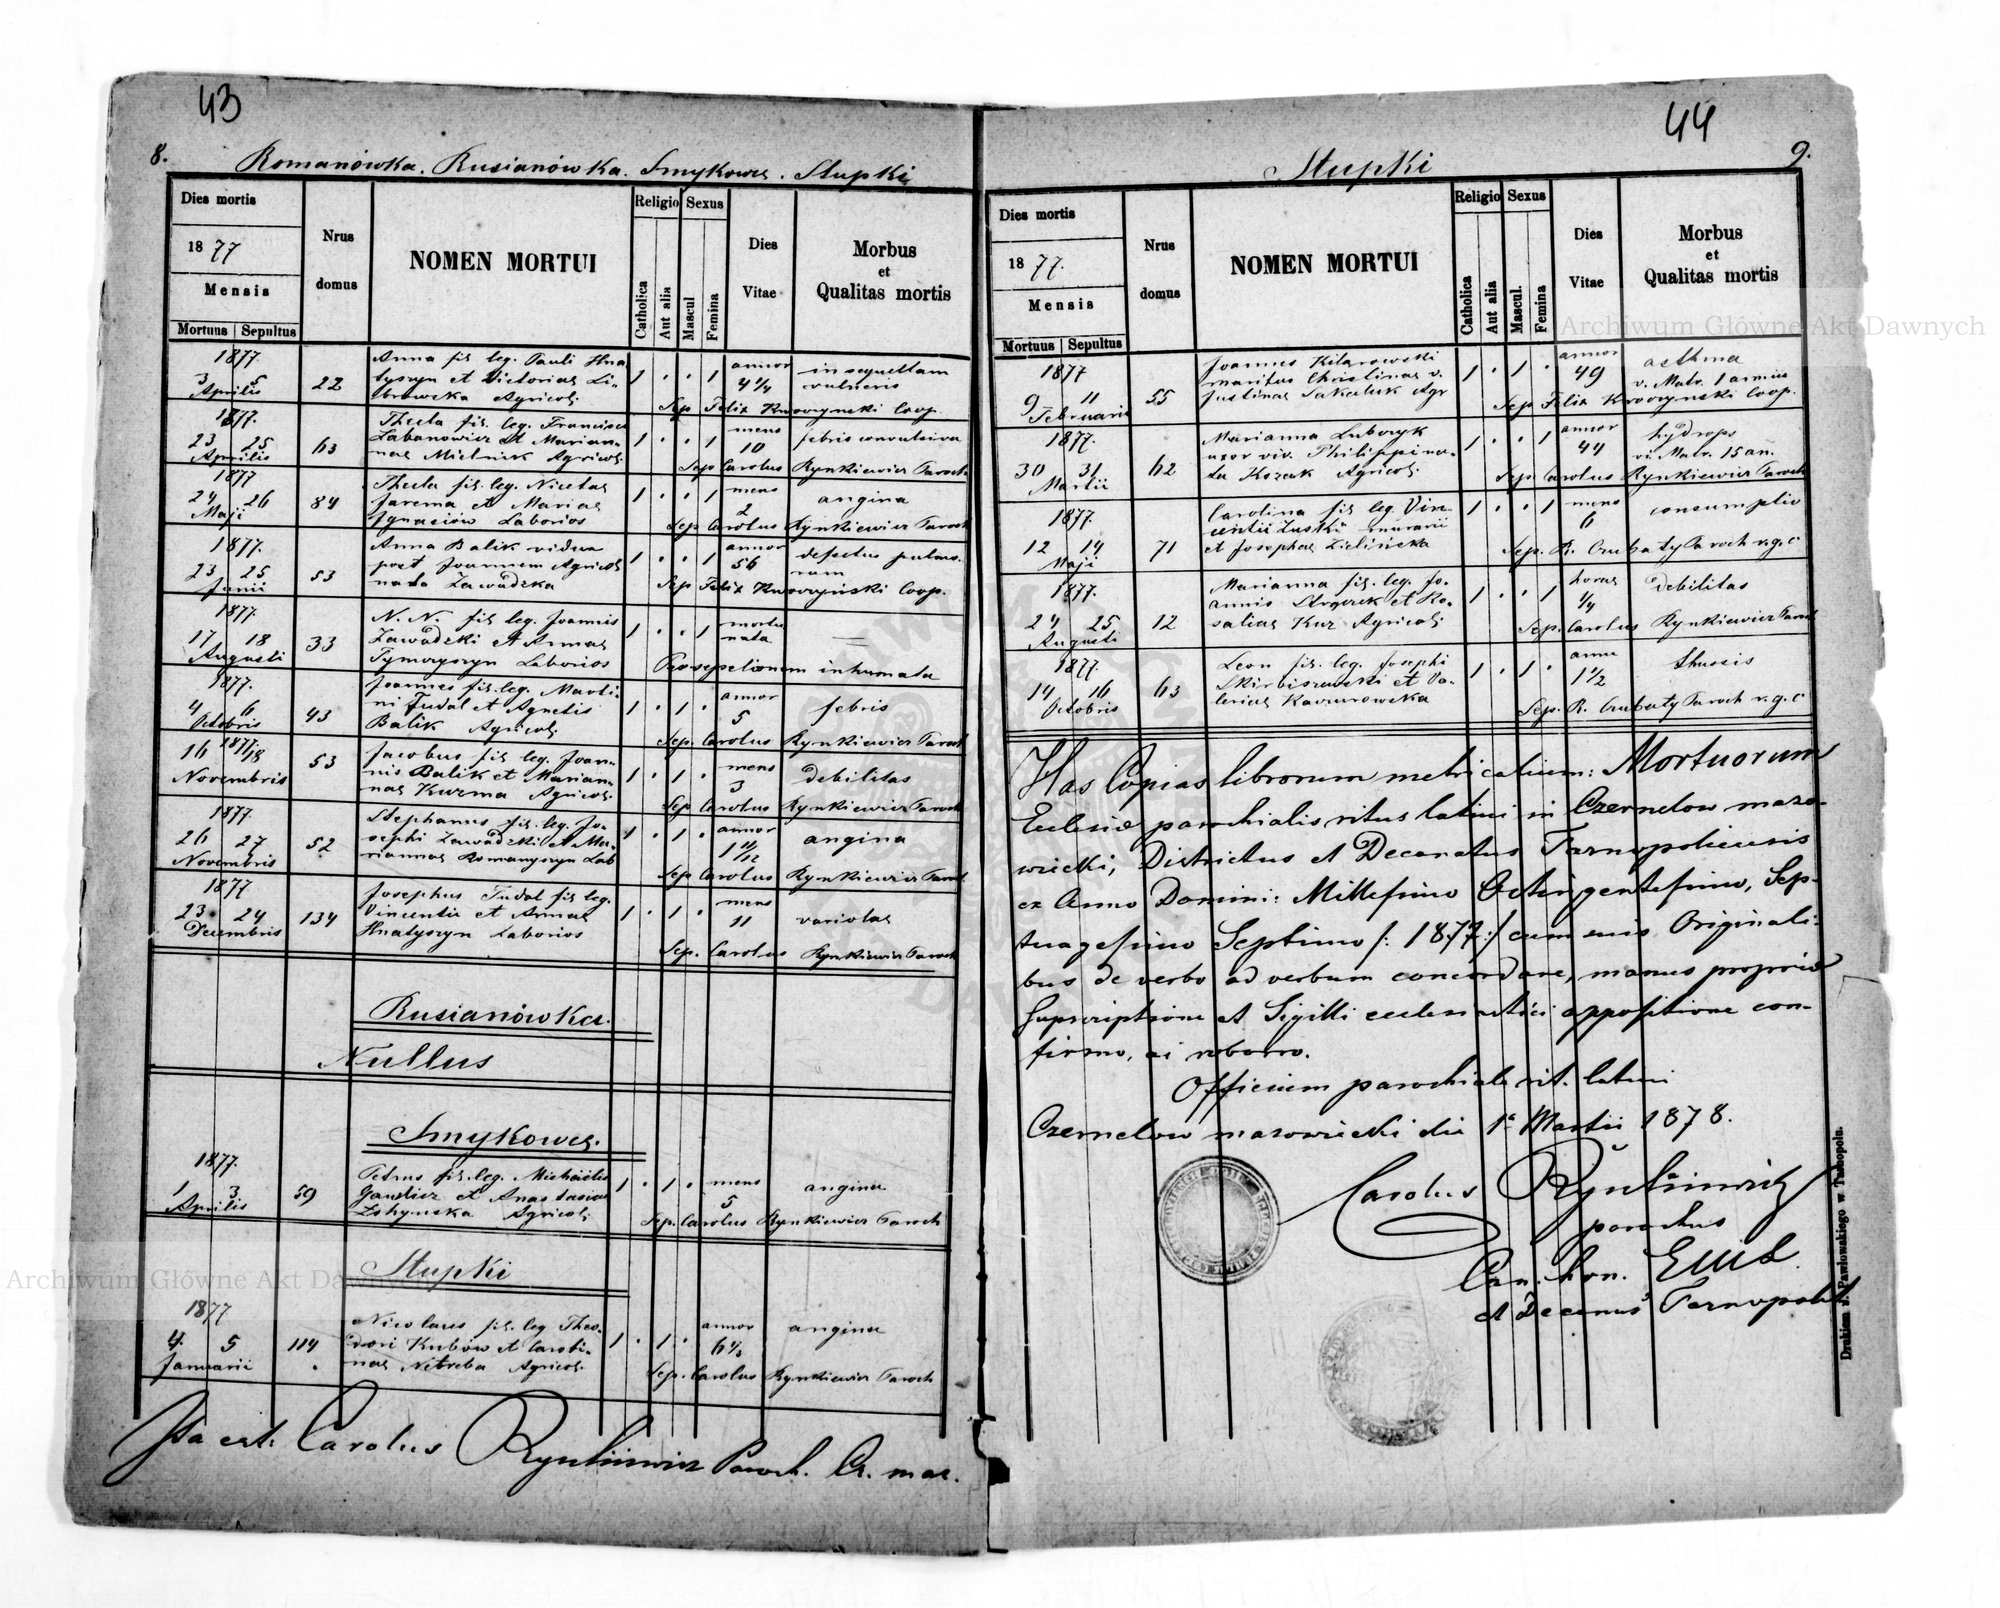 43
8.
Romanówka. Rusianówka. Smykowce. Stupki
Dies mortis
1877
Mensis
Mortuus | Sepultus
Nrus domus
NOMEN MORTUI
Religio
Catholica
Aut alia
Sexus
Mascul
Femina
Dies Vitae
Morbus
et
Qualitas mortis
1877. annor
3 5 Aprilis 22 Anna fil. leg. Pauli Hna- 1 . . 1 4 1/4 in sequellam
tyszyn et Victorias Li- vulneris
browska Agricol. Sep. Felix Kworzynski Coop.
1877. mens
23 25 Aprilis 63 Thecla fil. leg. Francisci 1 . . 1 10 febris convulsiva
Labanowicz et Marian-
nas Mielnik Agricol. Sep. Carolus Rynkiewicz Paroch
1877 mens
24 26 Maji 84 Thecla fil. leg. Nicetas 1 . . 1 2 angina
Jarema et Marias
Ignaciów Laborios Sep. Carolus Rynkiewicz Paroch
1877. annor
23 25 Junii 53 Anna Balik vidua 1 . . 1 56 defectus pulmo-
post Joannem Agricol. num
nata Zawadzka Sep. Felix Kworzyński Coop.
1877. mortu
17 18 Augusti 33 N. N. fil. leg. Joannis 1 . . 1 nata —
Zawadzki et Annas
Tymczyszyn Laborios inhumata
1877. annor
4 6 Octobris 43 Joannes fil. leg. Marti- 1 . 1 . 5 febris
ni Fudal et Agnetis
Balik Agricol. Sep. Carolus Rynkiewicz Paroch
1877. mens
16 18 Novembris 53 Jacobus fil. leg. Joan- 1 . 1 . 3 debilitas
nis Balik et Marian-
nas Kuzma Agricol. Sep. Carolus Rynkiewicz Paroch
1877. annor
26 27 Novembris 52 Stephanus fil. leg. Jo- 1 . 1 . 1 11/12 angina
sephi Zawadzki et Ma-
riannas Romanyszyn Lab Sep. Carolus Rynkiewicz Paroch
1877 mens
23 24 Decembris 134 Josephus Fudal fil. leg. 1 . 1 . 11 variolas
Vincentii et Annas
Hnatyszyn Laborios Sep. Carolus Rynkiewicz Paroch
Rusianówka.
Nullus
Smykowce.
1877. mens
1 3 Aprilis 59 Petrus fil. leg. Michaëlis 1 . 1 . 5 angina
et Anastasias
Agricol. Sep. Carolus Rynkiewicz Paroch
Stupki
1877 annor
4. 5 Januarii 114 Nicolaus fil. leg Theo- 1 . 1 . angina
dori Kubów et Caroli-
nas Netreba Agricol. Sep. Carolus Rynkiewicz Paroch
Ita est. Carolus Rynkiewicz Paroch. Cz. maz.
44
9.
Stupki
Dies mortis
1877.
Mensis
Mortuus | Sepultus
Nrus domus
NOMEN MORTUI
Religio
Catholica
Aut alia
Sexus
Mascul.
Femina
Dies Vitae
Morbus
et
Qualitas mortis
1877 annor
9 11 Februarii 55 Joannes Kilarowski 1 . 1 . 49 asthma
maritus Christinas v. v. Matr. 1 annius
Justinas Sakaluk Agr Sep Felix Kworzynski Coop.
1877. annor
30 31 Martii 62 Marianna Luberyk 1 . . 1 44 hydrops
uxor viv. Philippi na- vi. Matr. 15 an.
ta Kozak Agricol. Sep. Carolus Rynkiewicz Paroch
1877. mens
12 14 Maji 71 Carolina fil. leg. Vin- 1 . . 1 6 consumptio
centii Zuski murarii
et Josephas Zielińska Sep. R. Czubaty Paroch r.g.c
1877. horas
24 25 Augusti 12 Marianna fil. leg. Jo- 1 . . 1 1/4 debilitas
annis et Ro-
salias Kuz Agricol. Sep. Carolus Rynkiewicz Paroch
1877. anni
14 16 Octobris 63 Leon fil. leg. Josephi 1 . 1 . 1 1/2 thussis
et Va-
lerias Kaczurowska Sep. R. Czubaty Paroch r.g.c
Has Copias librorum metricalium: Mortuorum
Ecclesiæ parochialis ritus latini in Czernelow mazo-
wiecki, Districtus et Decanatus Tarnopoliensis
ex Anno Domini: Millesimo Octingentesimo, Sep-
tuagesimo Septimo /: 1877 :/ cum suis Originali-
bus de verbo ad verbum concordare, manus propriæ
supscriptione et Sigilli ecclesiastici appositione con-
firmo, ac roboro.
Officium parochiale rit. latini
Czernelow mazowiecki die 1a Martii 1878.
Carolus Rynkiewicz
parochus
Can. hon.
et Decanus Tarnopol
Drukiem J. Pawłowskiego w Tarnopolu.
Archiwum Główne Akt Dawnych
Archiwum Główne Akt Dawnych